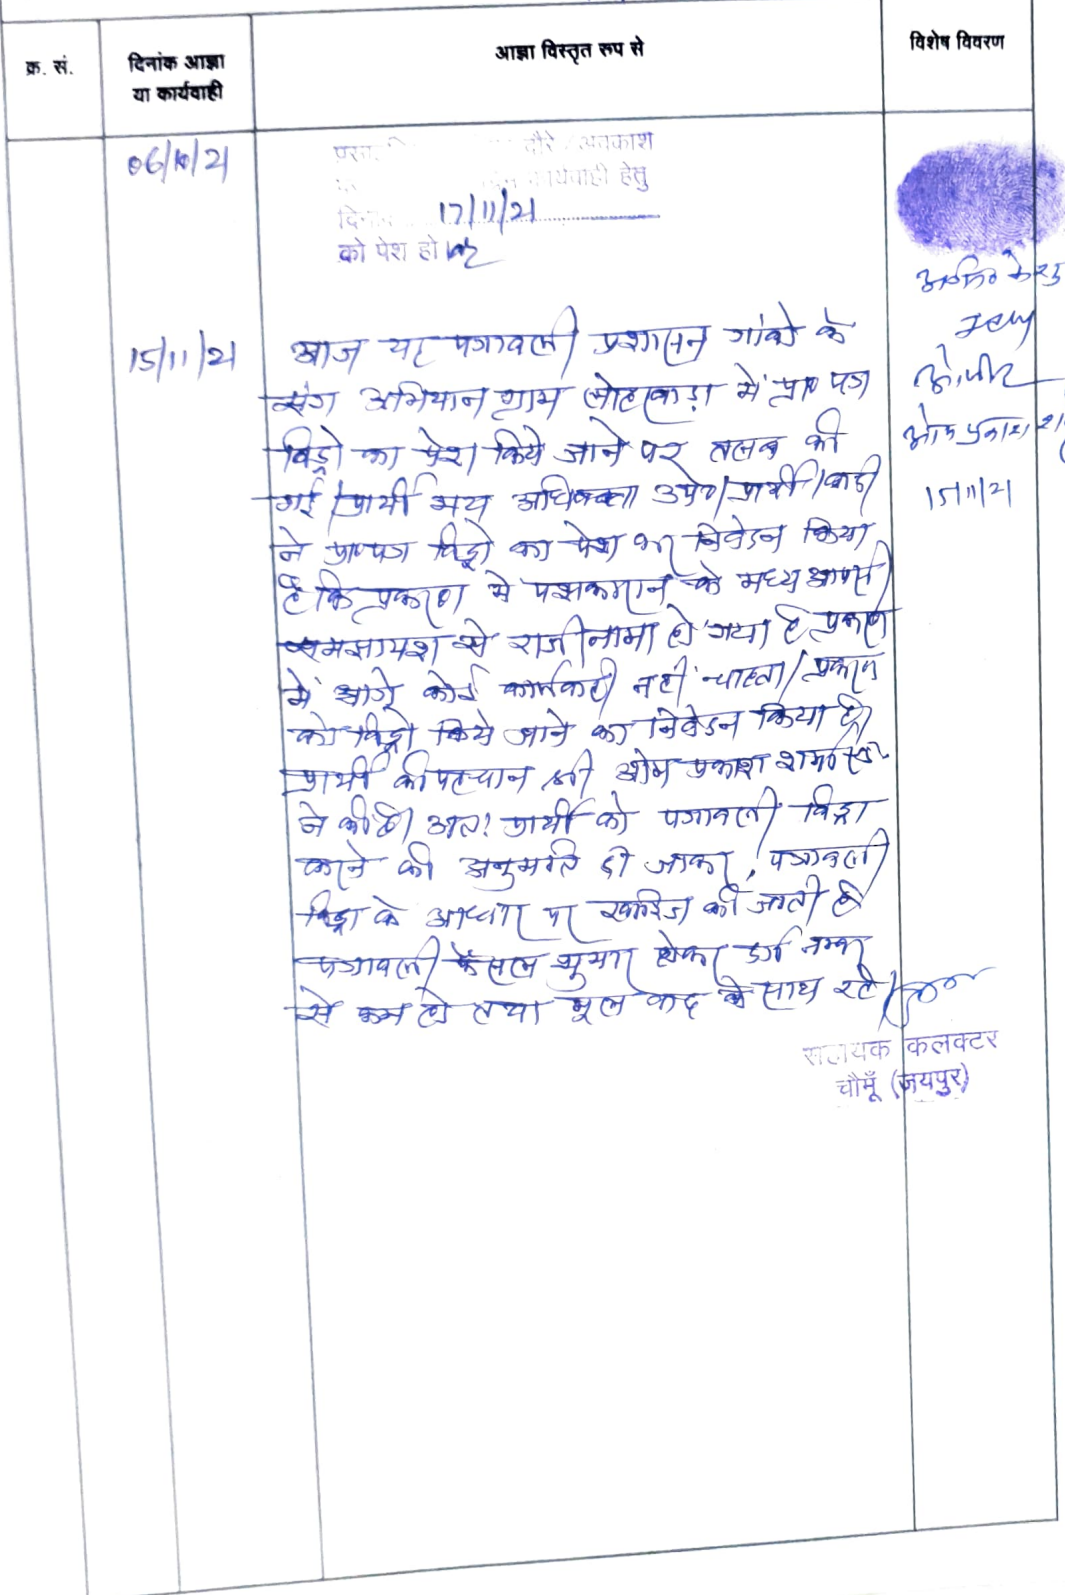 क्र. सं.
दिनांक आज्ञा
या कार्यवाही
आज्ञा विस्तृत रूप से
विशेष विवरण
06/10/21
दौरे / अवकाश
कार्यवाही हेतु
17/11/21
को पेश हो
15/11/21
आज यह पत्रावली प्रशासन गांवो के
संग अभियान ग्राम में प्रा० पत्र
विड्रो का पेश किये जाने पर तलब की
गई / प्रार्थी मय अधिवक्ता उप० / प्रार्थी / वादी
ने प्रा० पत्र विड्रो का पेश कर निवेदन किया
है कि प्रकरण मे पक्षकारान के मध्य आपसी
समझायश से राजीनामा हो गया है प्रकरण
में आगे कोई कार्यवाही नहीं चाहता / प्रकरण
को विड्रो किये जाने का निवेदन किया है।
प्रार्थी की पहचान श्री ओम प्रकाश शर्मा
ने की है। अतः प्रार्थी को पत्रावली विड्रा
करने की अनुमति दी जाकर, पत्रावली
विड्रा के आधार पर खारिज की जाती है
पत्रावली फैसल शुमार होकर दर्ज नम्बर
से कम हो तथा मूल वाद के साथ रहे /
ओम प्रकाश
15/11/21
सहायक कलक्टर
चौमूँ (जयपुर)